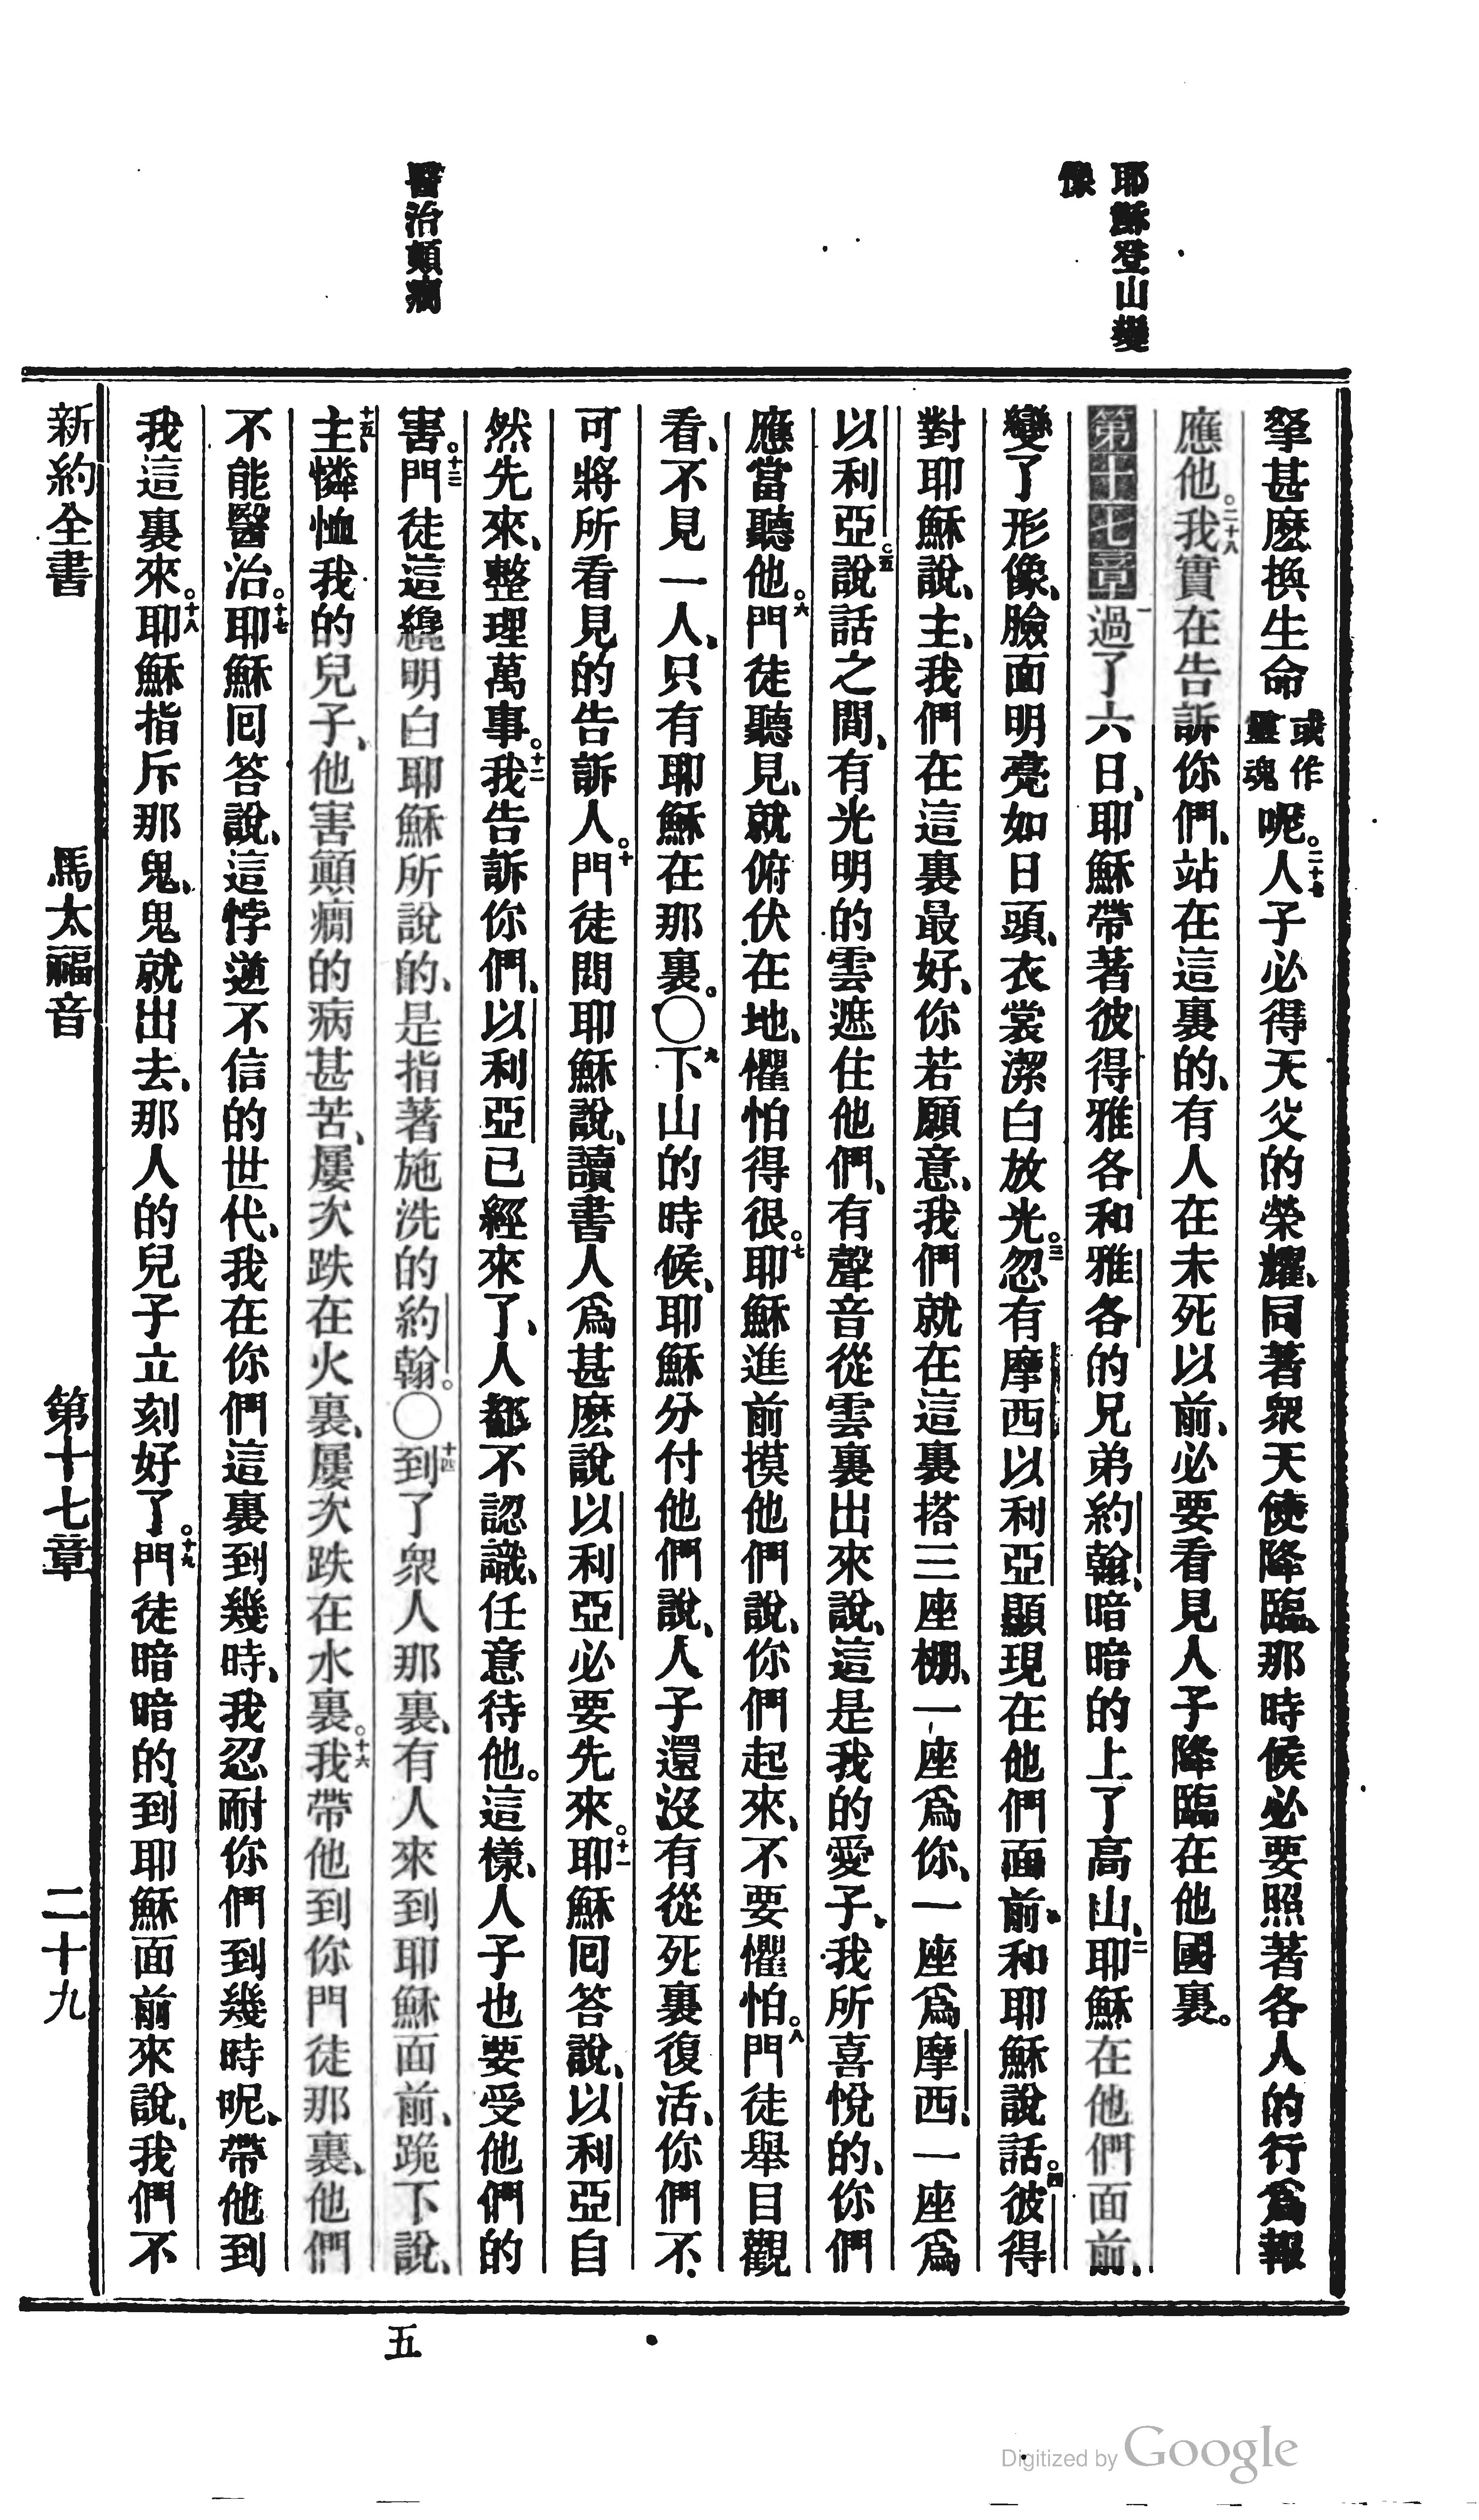 耶穌登山變
像
醫治顛癇
拏甚麽換生命或作靈魂呢。二十七人子必得天父的榮耀、同著衆天使降臨、那時候必要照著各人的行爲報
應他。二十八我實在告訴你們、站在這裏的、有人在未死以前、必要看見人子降臨在他國裏。
第十七章一過了六日、耶穌帶著彼得雅各和雅各的兄弟約翰、暗暗的上了高山、二耶穌在他們面前、
變了形像、臉面明亮如日頭、衣裳潔白放光。三忽有摩西以利亞顯現在他們面前、和耶穌說話。四彼得
對耶穌說、主、我們在這裏最好、你若願意、我們就在這裏搭三座棚、一座爲你、一座爲摩西、一座爲
以利亞。五說話之間、有光明的雲遮住他們、有聲音從雲裏出來說、這是我的愛子、我所喜悅的、你們
應當聽他。六門徒聽見、就俯伏在地、懼怕得很。七耶穌進前摸他們說、你們起來、不要懼怕。八門徒舉目觀
看、不見一人、只有耶穌在那裏。〇九下山的時候、耶穌分付他們說、人子還沒有從死裏復活、你們不
可將所看見的告訴人。十門徒問耶穌說、讀書人爲甚麽說以利亞必要先來。十一耶穌囘答說、以利亞自
然先來、整理萬事。十二我告訴你們、以利亞已經來了、人都不認識、任意待他。這樣、人子也要受他們的
害。十三門徒這纔明白耶穌所說的、是指著施洗的約翰。〇十四到了衆人那裏、有人來到耶穌面前、跪下說、
十五主、憐恤我的兒子、他害顛癇的病甚苦、屢次跌在火裏、屢次跌在水裏。十六我帶他到你門徒那裏、他們
不能醫治。十七耶穌囘答說、這悖逆不信的世代、我在你們這裏到幾時、我忍耐你們到幾時呢、帶他到
我這裏來。十八耶穌指斥那鬼、鬼就出去、那人的兒子立刻好了。十九門徒暗暗的到耶穌面前來說、我們不
新約全書　馬太福音　第十七章　二十九
五
Digitized by Google